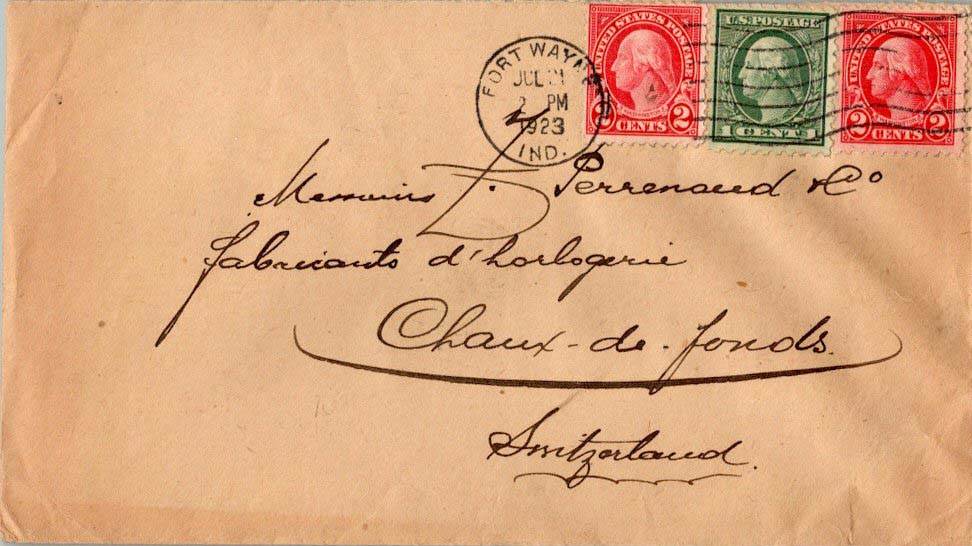 UNITED STATES POSTAGE
2 CENTS 2
U.S. POSTAGE
1 CENT 1
UNITED STATES POSTAGE
2 CENTS 2
FORT WAYNE
JUL
PM
1923
IND.
Messieurs D. Perrenoud & Co
fabricants d'horlogerie
Chaux-de-fonds.
Switzerland.